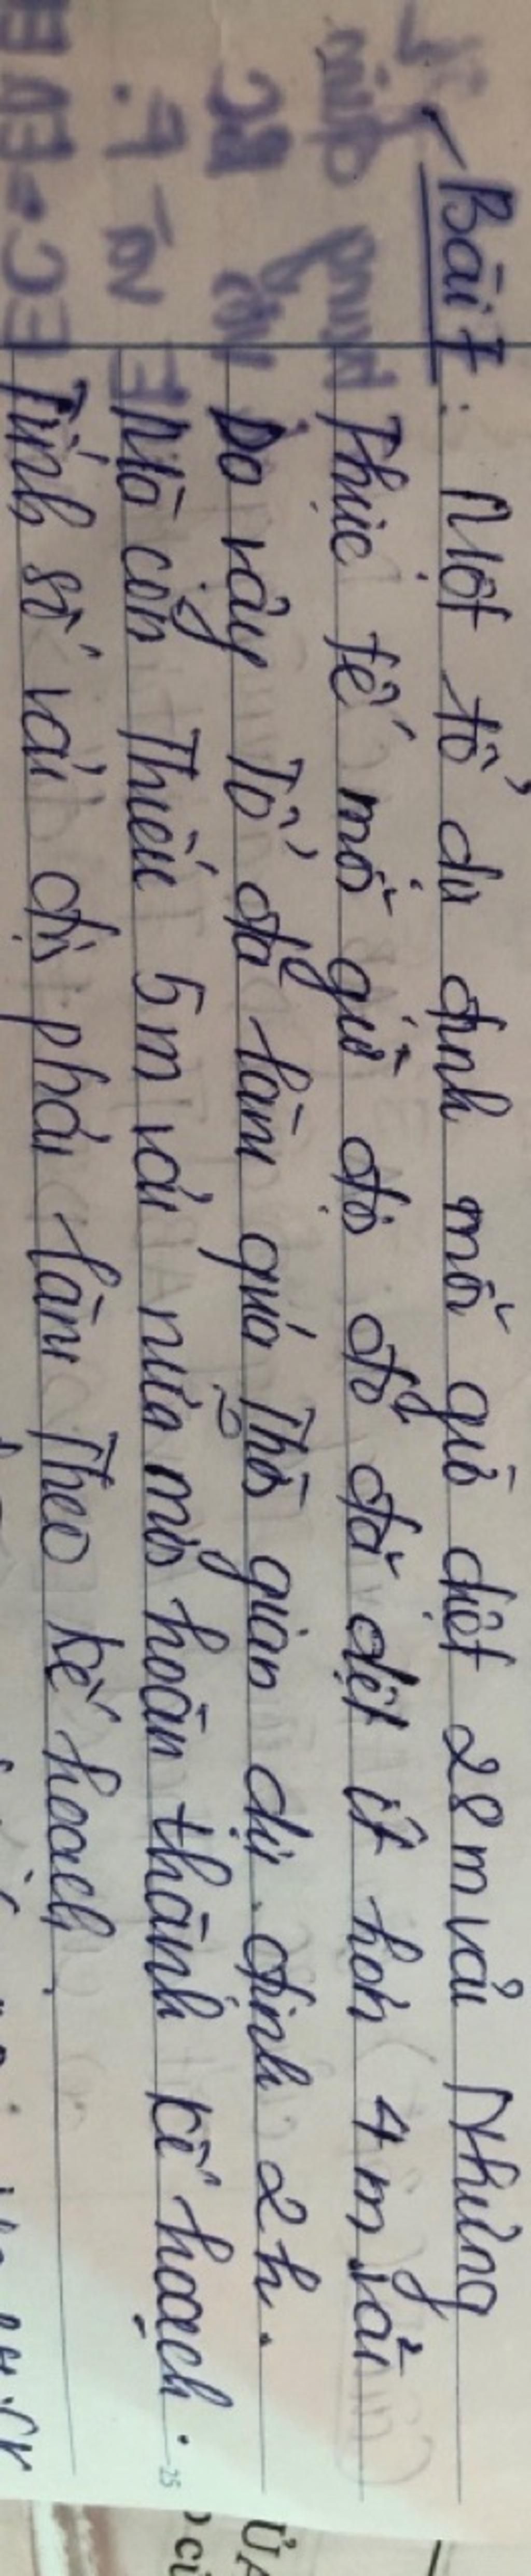 Bài 7: Một tổ dự định mỗi giờ dệt 28 m vải Nhưng
Thực tế mỗi giờ đó đã dệt ít hơn 4 m vải
Do vậy Tổ đã làm quá Thời gian dự định 2h.
Mà còn Thiếu 5m vải nữa mới hoàn thành kế hoạch.
Tính số vải đó phải làm Theo kế hoạch.